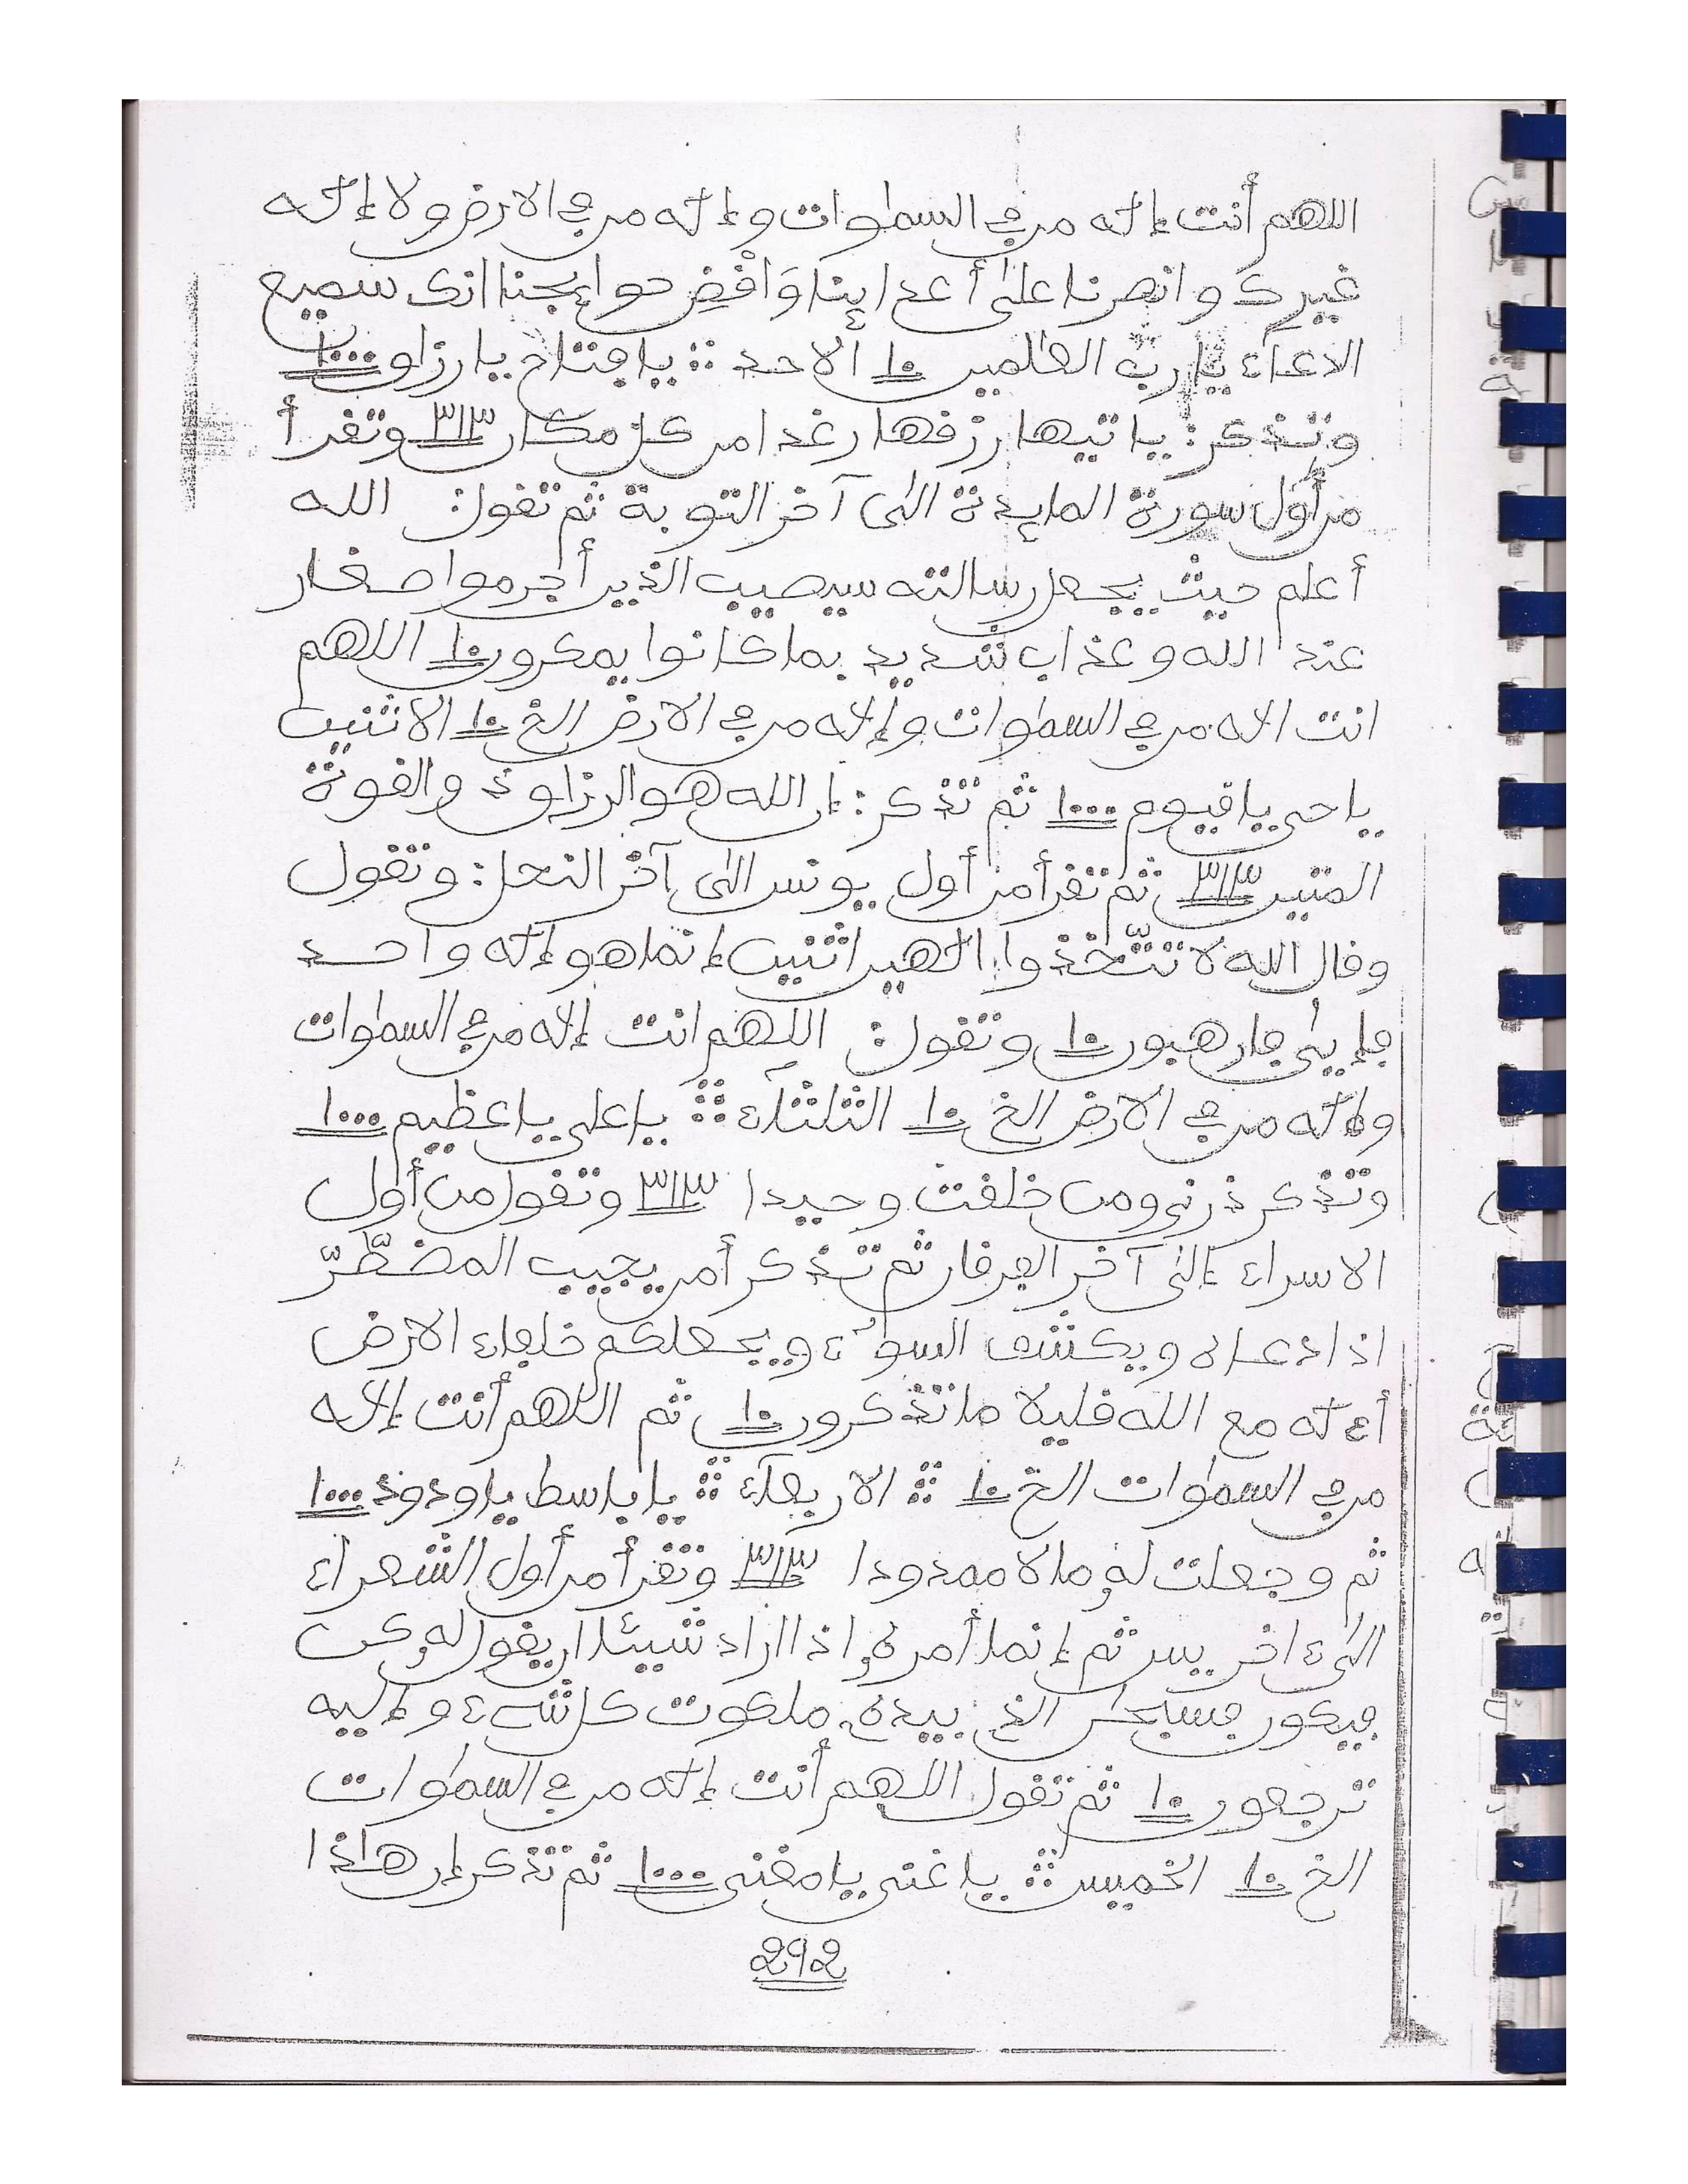 اللهم أنت إله من في السموات وإله من في الارض ولا إله
غيرك وانصرنا على أعدائنا وَاقْضِ حوائجنا انك سميع
الدعاء يا رب العلمين ١٠ الاحد يا فتاح يا رزاق ١٠٠٠
وتذكر: ياتيها رزقها رغدا من كل مكان ٣١٣ وتقرأ
من أول سورة المايدة الى آخر التوبة ثم تقول: الله
أعلم حيث يجعل رسالته سيصيب الذين أجرموا صغار
عند الله وعذاب شديد بما كانوا يمكرون ١٠ اللهم
انت اله من في السموات وإله من في الارض الخ ١٠ الاثنين
يا حي يا قيوم ١٠٠٠ ثم تذكر: إن الله هو الرزاق ذو القوة
المتين ٣١٣ ثم تقرأ من أول يونس الى آخر النحل: وتقول
وقال الله لا تتّخذوا الهين اثنين إنما هو إله واحد
فإيى فارهبون ١٠ وتقول: اللهم انت إله من في السموات
وإله من في الارض الخ ١٠ الثلثاء يا علي يا عظيم ١٠٠٠
وتذكر ذرني ومن خلقت وحيدا ٣١٣ وتقول من أول
الاسراء إلى آخر الفرقان ثم تذكر أمن يجيب المضطّرّ
اذا دعاه ويكشف السوء ويجعلكم خلفاء الارض
أءله مع الله قليلا ما تذكرون ١٠ ثم اللهم أنت إله
من في السموات الخ ١٠ الاربعآء يا باسط يا ودود ١٠٠٠
ثم وجعلت له مالا ممدودا ٣١٣ وتقرأ من أول الشعراء
الى ءاخر يس ثم إنما أمره اذا اراد شيئا ان يقول له كن
فيكون فسبحن الذي بيده ملكوت كل شيء وإليه
ترجعون ١٠ ثم تقول اللهم أنت إله من في السموات
الخ ١٠ الخميس يا غني يا مغني ١٠٠٠ ثم تذكر إن هاذا
292